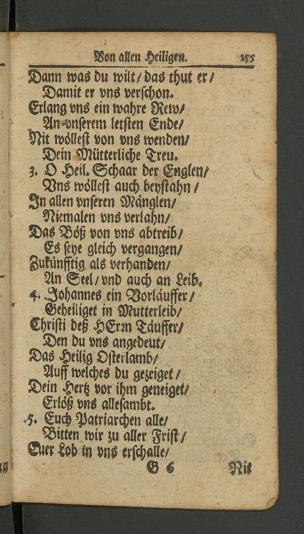 Von allen Heiligen. 155
Dann was du wilt/ das thut er/
Damit er vns verschon.
Erlang vns ein wahre Rew/
An vnserem letsten Ende/
Nit wöllest von vns wenden/
Dein Mütterliche Treu.
3. O Heil. Schaar der Englen/
Vns wöllest auch beystahn/
In allen vnseren Mänglen/
Niemalen vns verlahn/
Das Böß von vns abtreib/
Es seye gleich vergangen/
Zukünfftig als verhanden/
An Seel/ vnd auch an Leib.
4. Johannes ein Vorläuffer/
Geheiliget in Mutterleib/
Christi deß HErrn Täuffer/
Den du vns angedeut/
Das Heilig Osterlamb/
Auff welches du gezeiget/
Dein Hertz vor ihm geneiget/
Erlöß vns allesambt.
5. Euch Patriarchen alle/
Bitten wir zu aller Frist/
Euer Lob in vns erschalle/
G 6 Mit